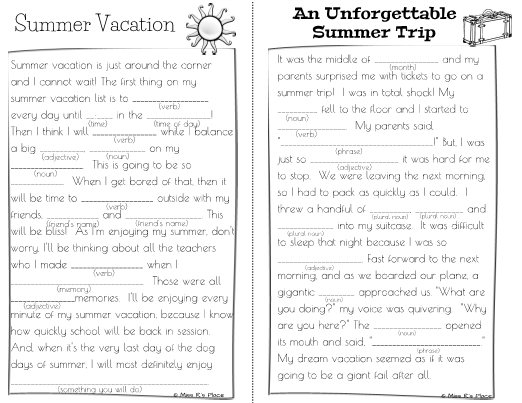 Summer Vacation
Summer vacation is just around the corner
and I cannot wait! The first thing on my
summer vacation list is to ____________
(verb)
every day until ______ in the __________!
(time) (time of day)
Then I think I will ____________ while I balance
(verb)
a big ________ __________ on my
(adjective) (noun)
____________. This is going to be so
__________. When I get bored of that, then it
will be time to __________ outside with my
(verb)
friends, ________ and ____________. This
(friend's name) (friend's name)
will be bliss! As I'm enjoying my summer, don't
worry, I'll be thinking about all the teachers
who I made __________ when I
(verb)
____________________. Those were all
(memory)
__________memories. I'll be enjoying every
(adjective)
minute of my summer vacation, because I know
how quickly school will be back in session.
And, when it's the very last day of the dog
days of summer, I will most definitely enjoy
______________________________.
(something you will do)
© Miss R's Place
An Unforgettable
Summer Trip
It was the middle of __________ and my
(month)
parents surprised me with tickets to go on a
summer trip! I was in total shock! My
________ fell to the floor and I started to
(noun)
__________. My parents said,
(verb)
"______________________!" But, I was
(phrase)
just so ____________, it was hard for me
(adjective)
to stop. We were leaving the next morning,
so I had to pack as quickly as I could. I
threw a handful of ________, ________ and
(plural noun) (plural noun)
________ into my suitcase. It was difficult
(plural noun)
to sleep that night because I was so
____________. Fast forward to the next
(adjective)
morning, and as we boarded our plane, a
gigantic ______ approached us. "What are
(noun)
you doing?" my voice was quivering. "Why
are you here?" The __________ opened
(noun)
its mouth and said, "________________"
(phrase)
My dream vacation seemed as if it was
going to be a giant fail after all.
© Miss R's Place